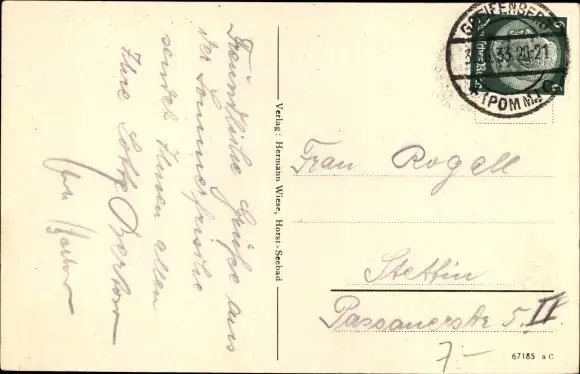 Freundliche Grüße aus
der Sommerfrische
sendet Ihnen allen
Ihre
Verlag: Hermann Wiese, Horst-Seebad
GREIFENBERG
33.20-21
(POMM)
Frau Rogell
Stettin
Passauerstr. 5. II
7.-
67185 a C